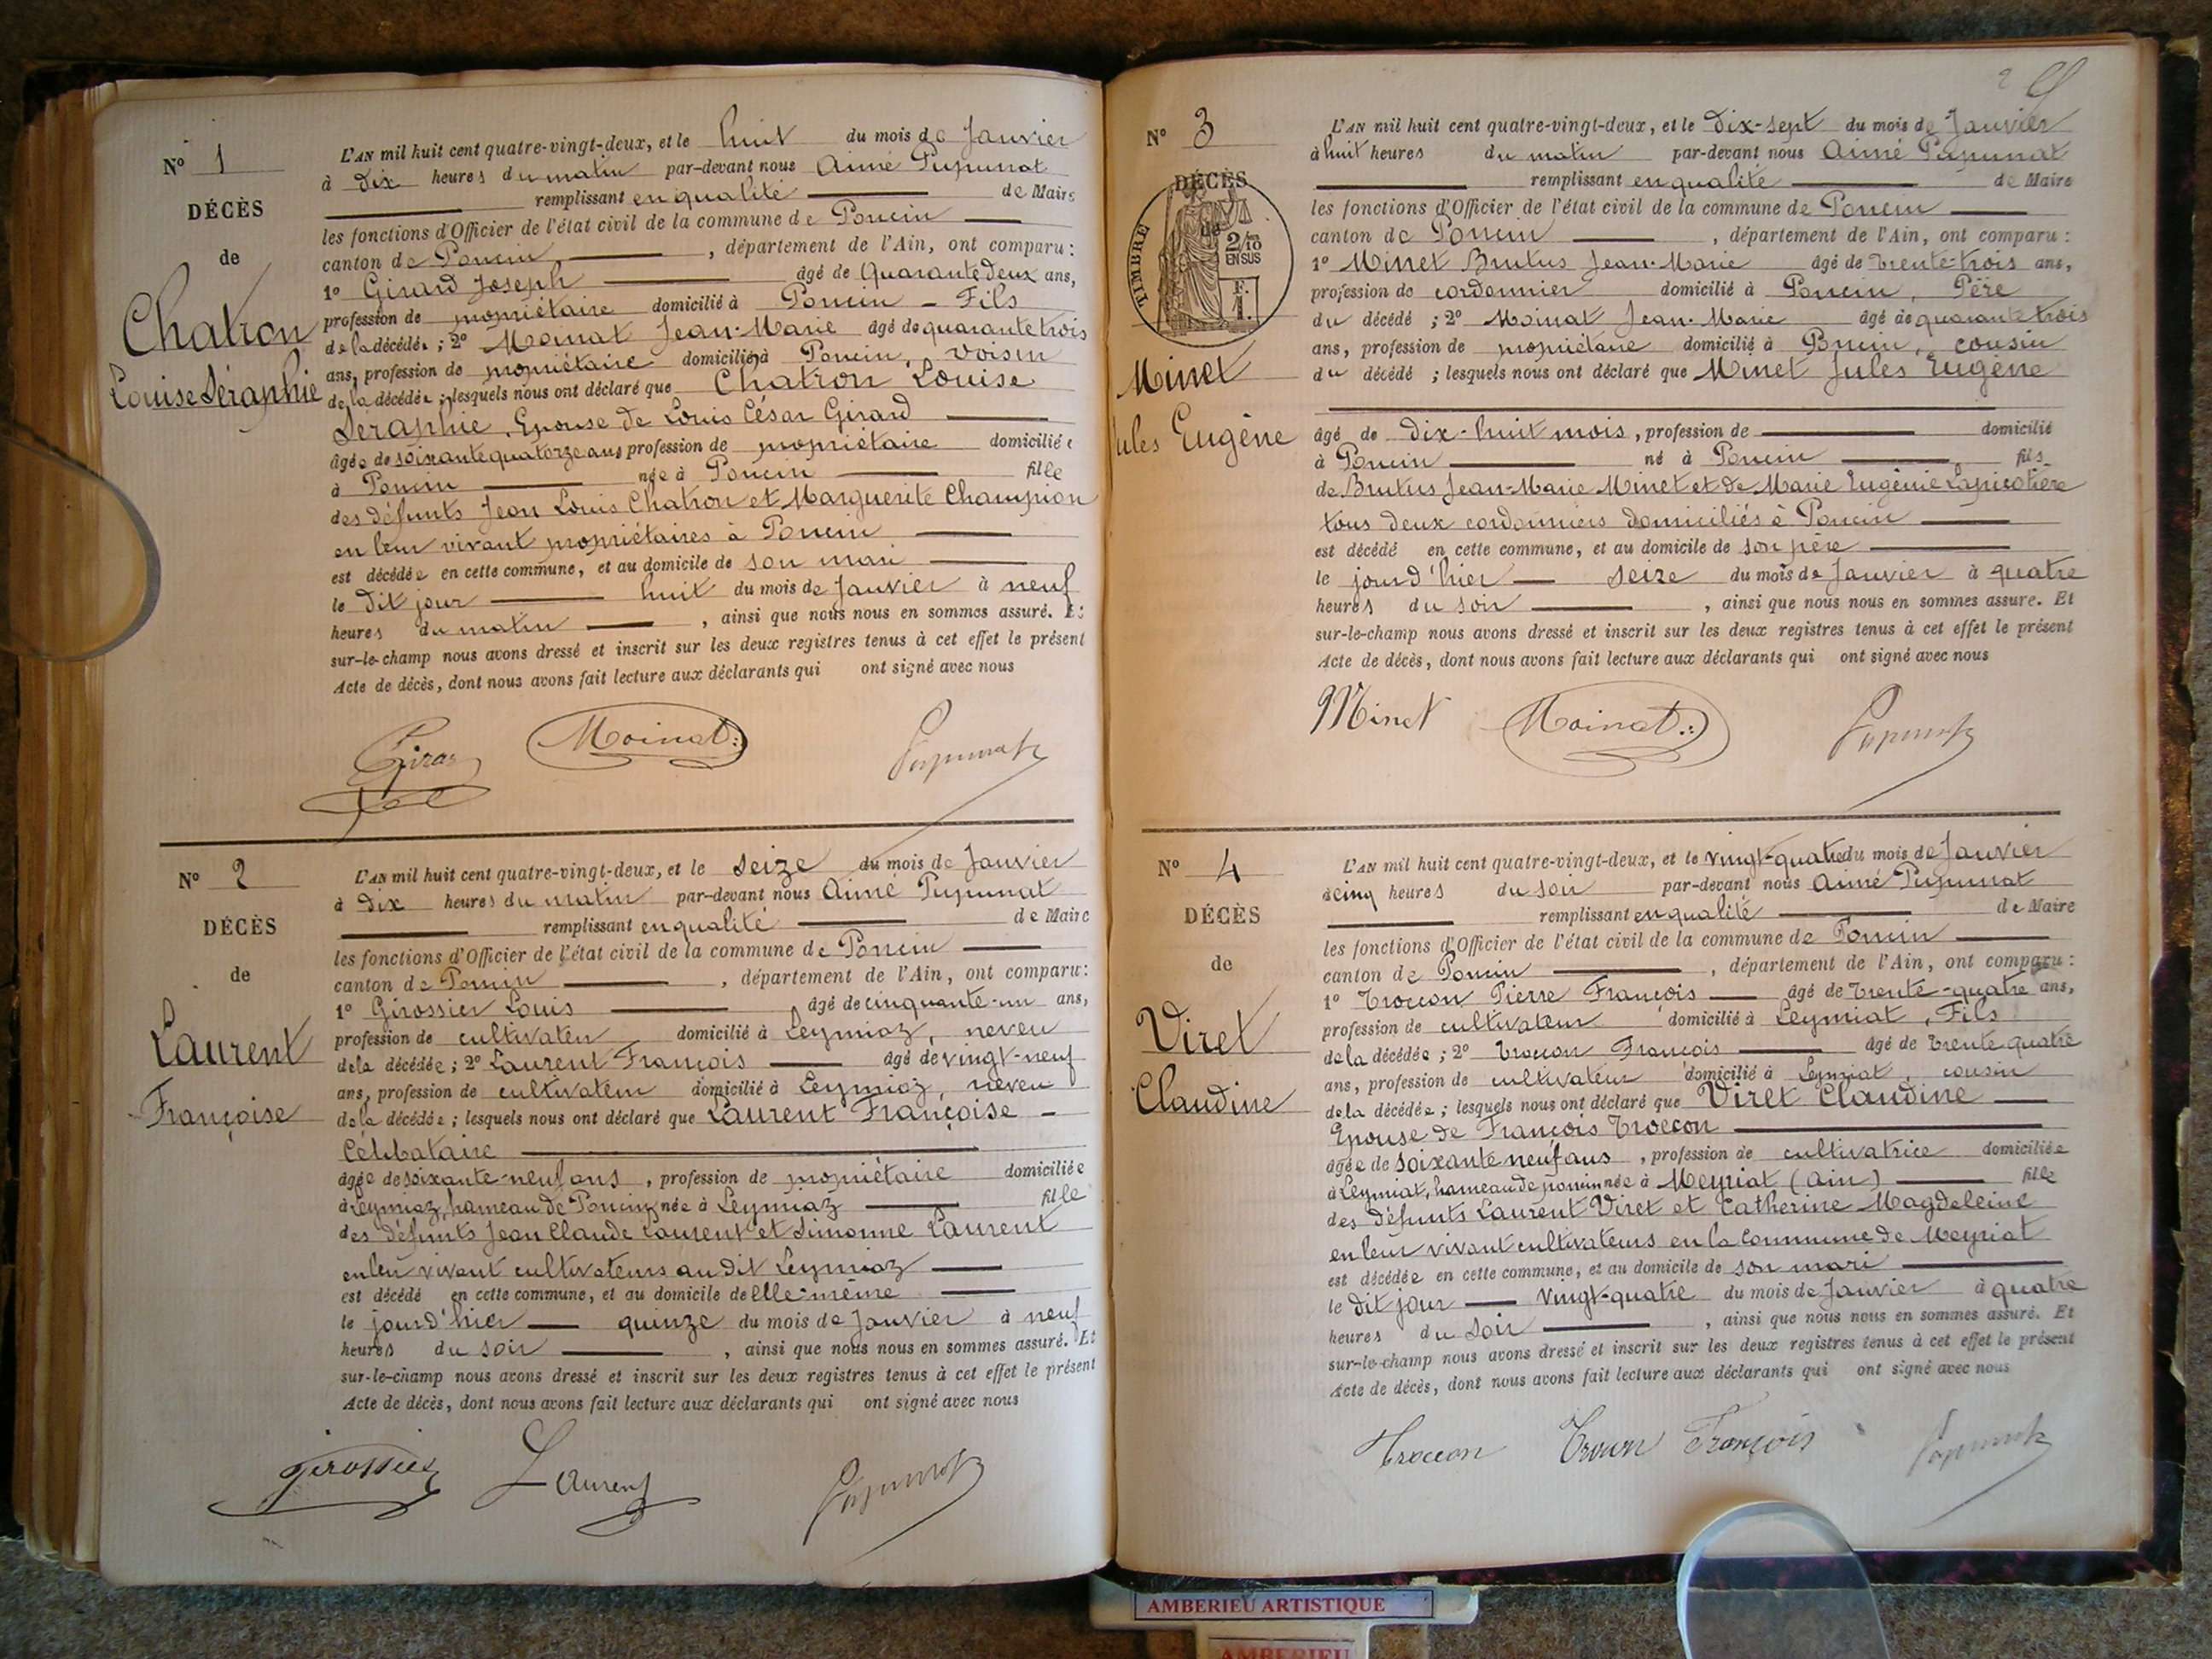 N° 1
DÉCÈS
de
Chatron
Louise Séraphie
L'AN mil huit cent quatre-vingt-deux, et le huit du mois de Janvier
à dix heures du matin par-devant nous Aimé Pupunat
remplissant en qualité de Maire
les fonctions d'Officier de l'état civil de la commune de Poncin
canton de Poncin, département de l'Ain, ont comparu :
1° Girard Joseph âgé de Quarante deux ans,
profession de propriétaire domicilié à Poncin - Fils
de la décédée ; 2° Moinat Jean-Marie âgé de quarante trois
ans, profession de propriétaire domicilié à Poncin, voisin
de la décédée ; lesquels nous ont déclaré que Chatron Louise
Séraphie, Epouse de Louis César Girard
âgée de soixante quatorze ans, profession de propriétaire domiciliée
à Poncin née à Poncin fille
des défunts Jean Louis Chatron et Marguerite Champion
en leur vivant propriétaires à Poncin
est décédée en cette commune, et au domicile de son mari
le dit jour huit du mois de Janvier à neuf
heures du matin, ainsi que nous nous en sommes assuré. Et
sur-le-champ nous avons dressé et inscrit sur les deux registres tenus à cet effet le présent
Acte de décès, dont nous avons fait lecture aux déclarants qui ont signé avec nous
Girard Moinat Pupunat
N° 2
DÉCÈS
de
Laurent
Françoise
L'AN mil huit cent quatre-vingt-deux, et le seize du mois de Janvier
à dix heures du matin par-devant nous Aimé Pupunat
remplissant en qualité de Maire
les fonctions d'Officier de l'état civil de la commune de Poncin
canton de Poncin, département de l'Ain, ont comparu :
1° Girossier Louis âgé de cinquante-un ans,
profession de cultivateur domicilié à Leymiaz, neveu
de la décédée ; 2° Laurent François âgé de vingt-neuf
ans, profession de cultivateur domicilié à Leymiaz, neveu
de la décédée ; lesquels nous ont déclaré que Laurent Françoise -
Célibataire
âgée de soixante-neuf ans, profession de propriétaire domiciliée
à Leymiaz, hameau de Poncin, née à Leymiaz fille
des défunts Jean Claude Laurent et Simonne Laurent
en leur vivant cultivateurs au dit Leymiaz
est décédé en cette commune, et au domicile de elle-même
le jourd'hier quinze du mois de Janvier à neuf
heures du soir, ainsi que nous nous en sommes assuré. Et
sur-le-champ nous avons dressé et inscrit sur les deux registres tenus à cet effet le présent
Acte de décès, dont nous avons fait lecture aux déclarants qui ont signé avec nous
Girossier Laurent Pupunat
2
N° 3
DÉCÈS
de
TIMBRE
2/10
EN SUS
F.
1.
Minet
Jules Eugène
L'AN mil huit cent quatre-vingt-deux, et le dix-sept du mois de Janvier
à huit heures du matin par-devant nous Aimé Pupunat
remplissant en qualité de Maire
les fonctions d'Officier de l'état civil de la commune de Poncin
canton de Poncin, département de l'Ain, ont comparu :
1° Minet Brutus Jean-Marie âgé de trente-trois ans,
profession de cordonnier domicilié à Poncin, Père
du décédé ; 2° Moinat Jean-Marie âgé de quarante trois
ans, profession de propriétaire domicilié à Poncin, cousin
du décédé ; lesquels nous ont déclaré que Minet Jules Eugène
âgé de dix-huit mois, profession de domicilié
à Poncin né à Poncin fils
de Brutus Jean-Marie Minet et de Marie Eugénie Lapicotière
tous deux cordonniers domiciliés à Poncin
est décédé en cette commune, et au domicile de son père
le jourd'hier seize du mois de Janvier à quatre
heures du soir, ainsi que nous nous en sommes assuré. Et
sur-le-champ nous avons dressé et inscrit sur les deux registres tenus à cet effet le présent
Acte de décès, dont nous avons fait lecture aux déclarants qui ont signé avec nous
Minet Moinat Pupunat
N° 4
DÉCÈS
de
Viret
Claudine
L'AN mil huit cent quatre-vingt-deux, et le vingt-quatre du mois de Janvier
à cinq heures du soir par-devant nous Aimé Pupunat
remplissant en qualité de Maire
les fonctions d'Officier de l'état civil de la commune de Poncin
canton de Poncin, département de l'Ain, ont comparu :
1° Troccon Pierre François âgé de trente-quatre ans,
profession de cultivateur domicilié à Leymiat, Fils
de la décédée ; 2° Troccon François âgé de trente quatre
ans, profession de cultivateur domicilié à Leymiat, cousin
de la décédée ; lesquels nous ont déclaré que Viret Claudine
Epouse de François Troccon
âgée de soixante neuf ans, profession de cultivatrice domiciliée
à Leymiat, hameau de poncin née à Meyriat (Ain) fille
des défunts Laurent Viret et Catherine Magdeleine
en leur vivant cultivateurs en la Commune de Meyriat
est décédée en cette commune, et au domicile de son mari
le dit jour vingt-quatre du mois de Janvier à quatre
heures du soir, ainsi que nous nous en sommes assuré. Et
sur-le-champ nous avons dressé et inscrit sur les deux registres tenus à cet effet le présent
Acte de décès, dont nous avons fait lecture aux déclarants qui ont signé avec nous
Troccon Trocon François Pupunat
AMBERIEU ARTISTIQUE
AMBERIEU